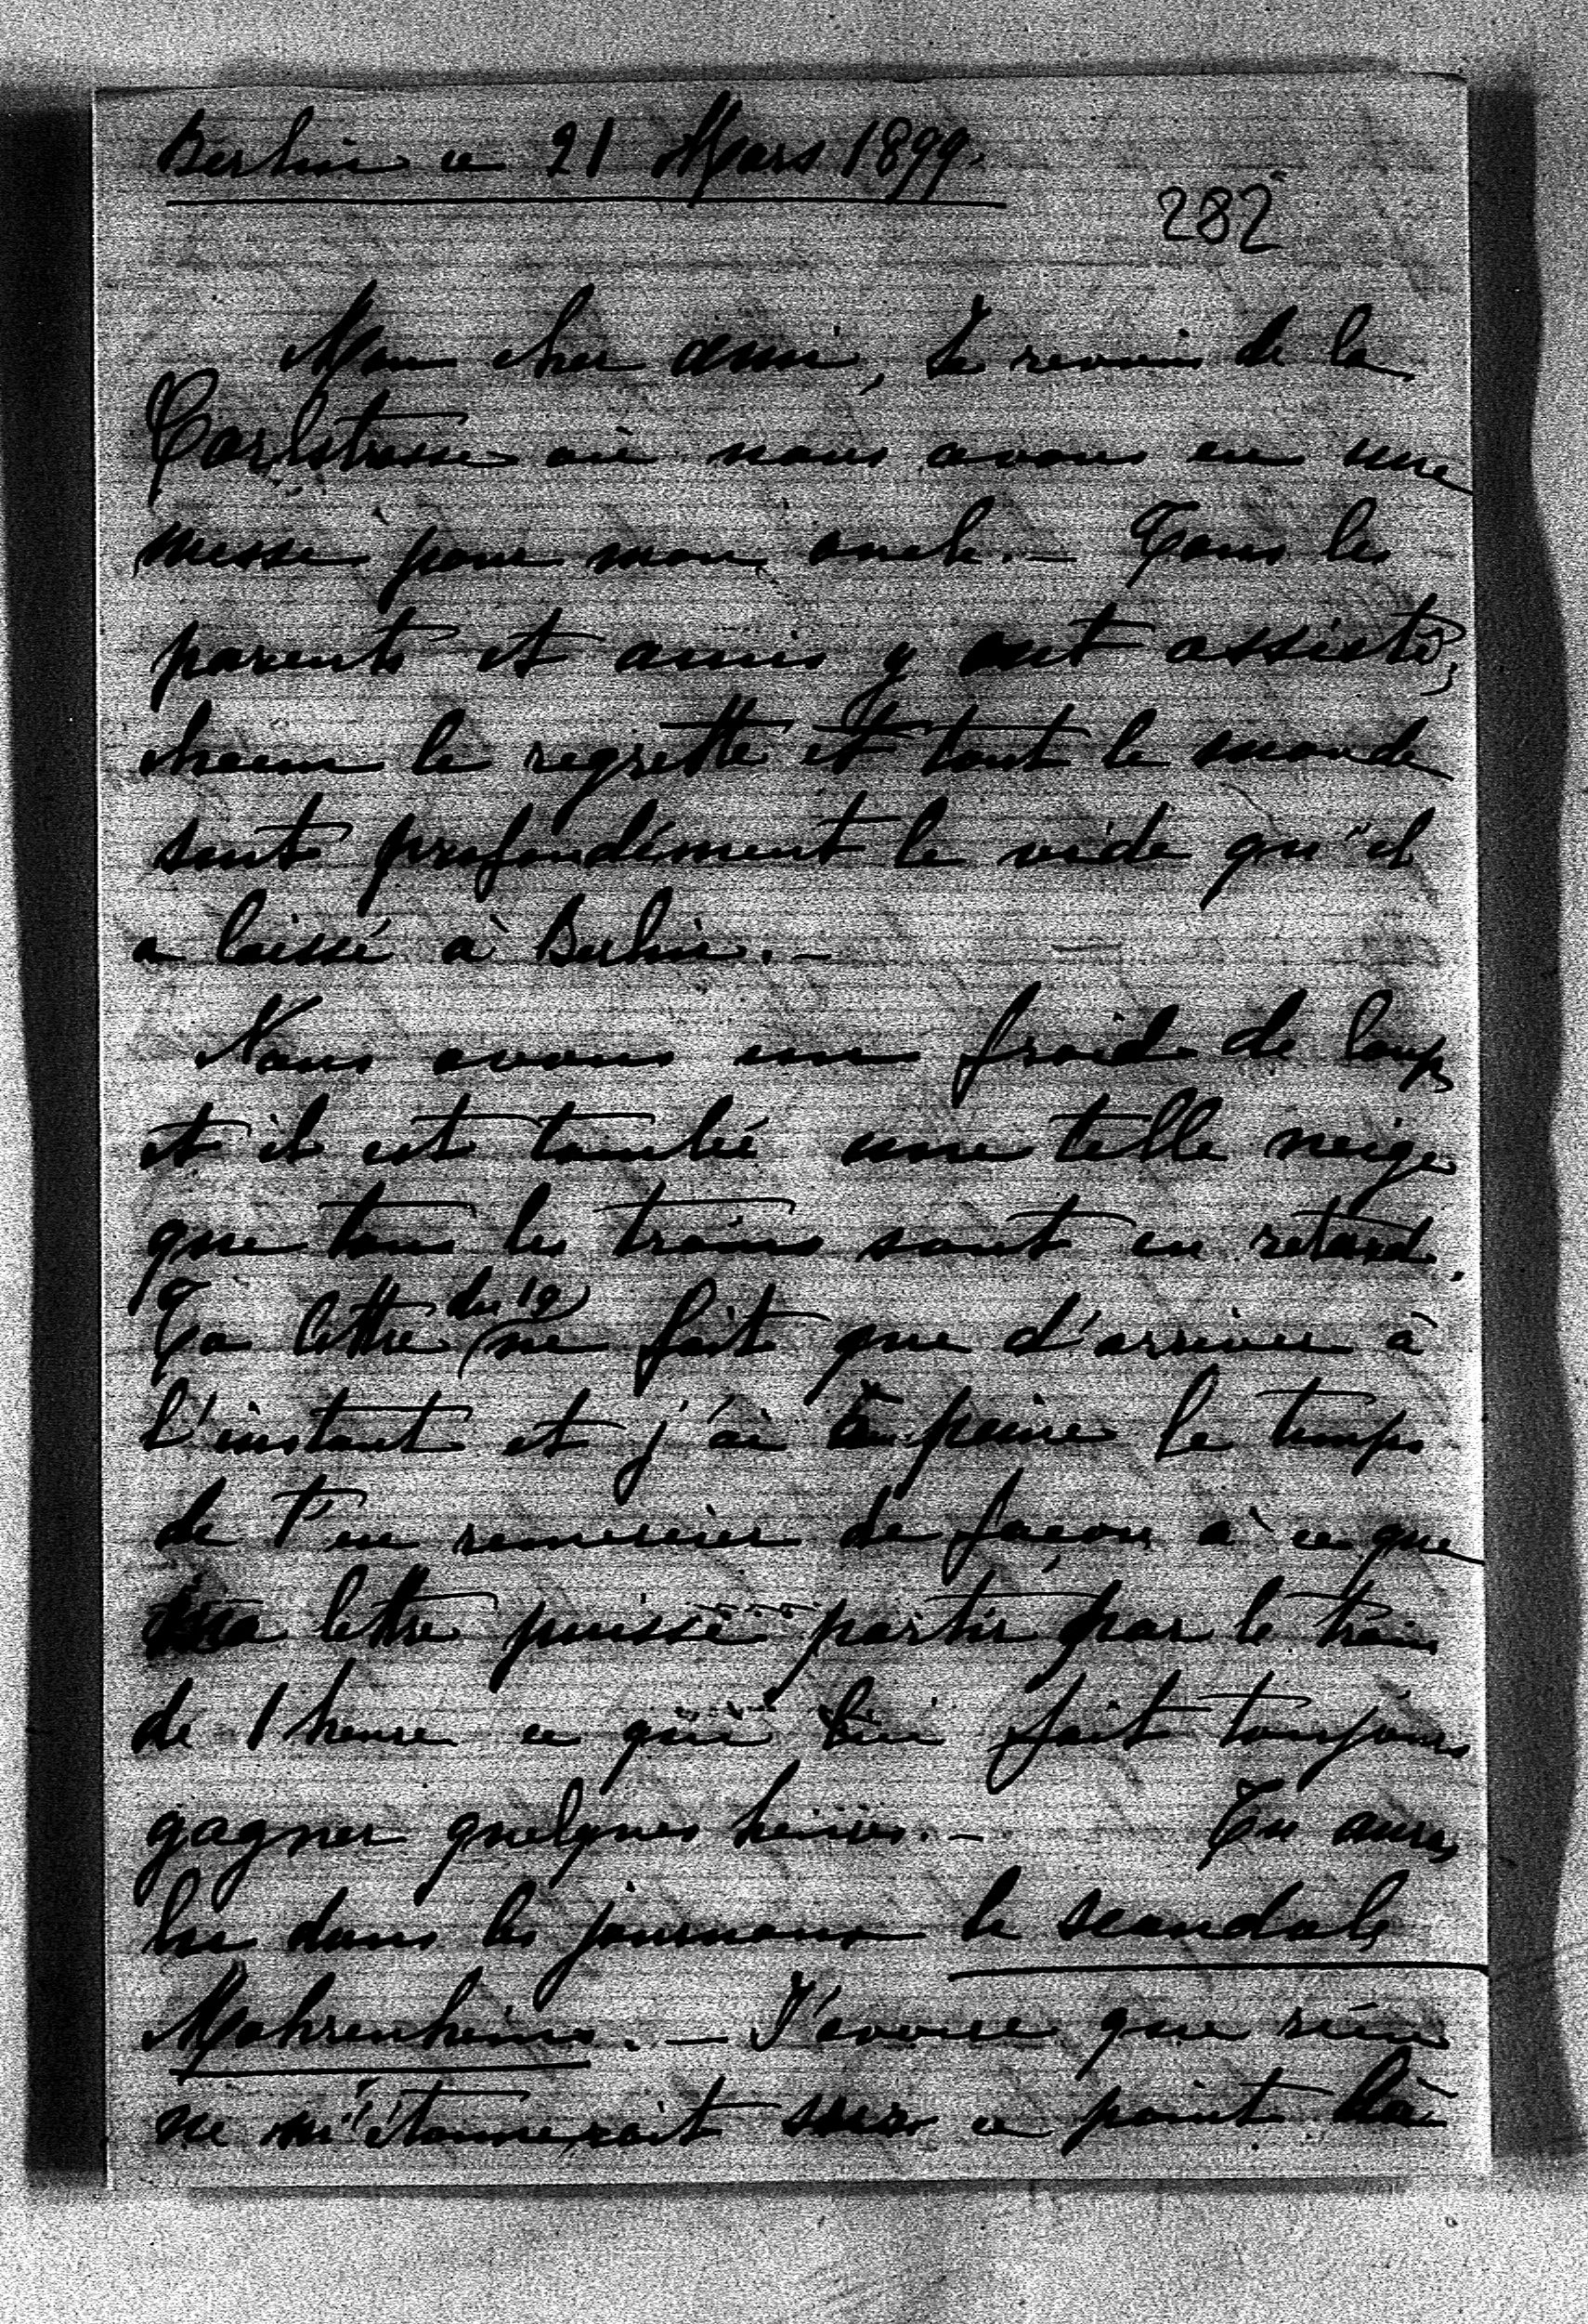 Berlin ce 21 Mars 1899.
282
Mon cher ami, Je reviens de la
Carlstrasse où nous avons eu une
messe pour mon oncle. — Tous les
parents et amis y ont assisté;
chacun le regrette et tout le monde
sent profondément le vide qu'il
a laissé à Berlin. —
Nous avons un froid de loup
et il est tombé une telle neige
que tous les trains sont en retard.
Ta lettre du 19 ne fait que d'arriver à
l'instant et j'ai à peine le temps
de t'en remercier de façon à ce que
ma lettre puisse partir par le train
de 1 heure ce qui lui fait toujours
gagner quelques heures. — Tu auras
lu dans les journaux le scandale
Mohrenheim. — J'avoue que rien
ne m'étonnerait sur ce point là